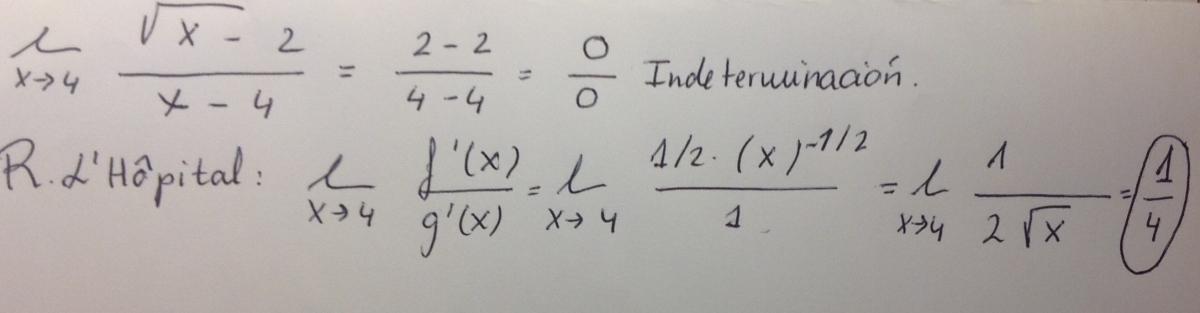 L x→4 (√x - 2)/(x - 4) = (2 - 2)/(4 - 4) = 0/0 Indeterminación.
R. L'Hôpital: L x→4 f'(x)/g'(x) = L x→4 (1/2 · (x)^-1/2)/1 = L x→4 1/(2√x) = 1/4